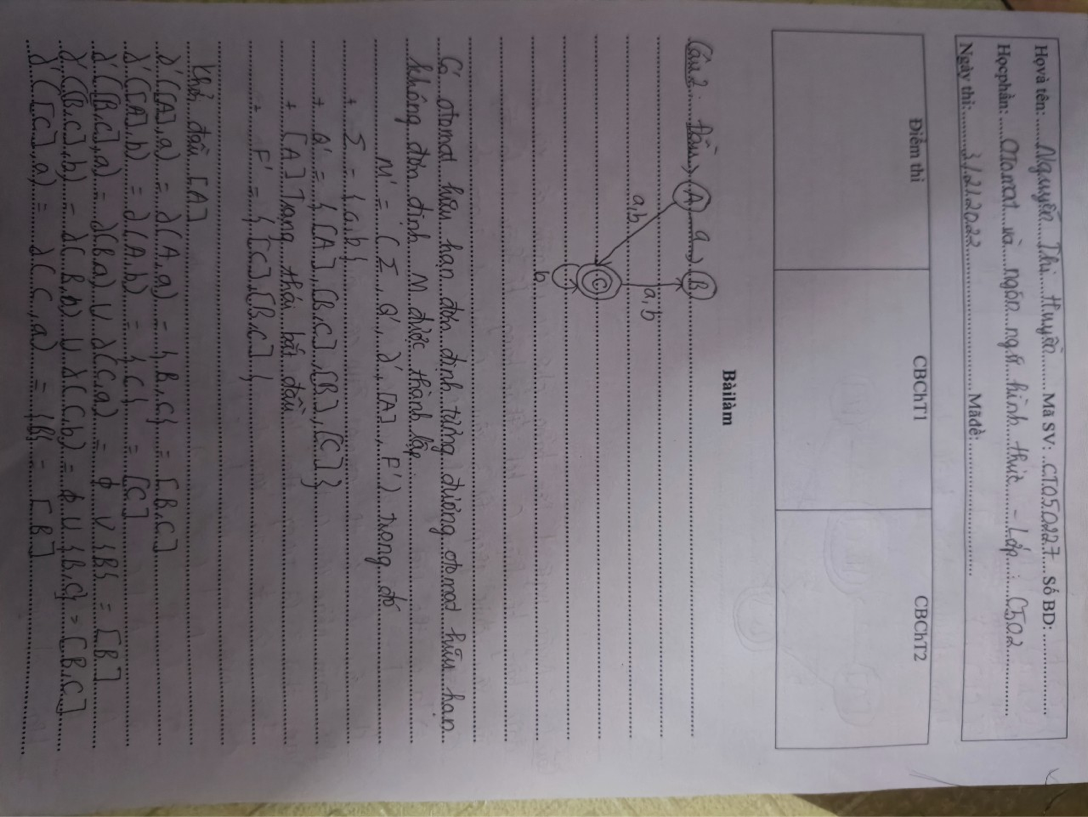 Họ và tên: Nguyễn Thị Huyền Mã SV: CT050227 Số BD:
Học phần: Otomat và ngôn ngữ hình thức - Lớp: CT5.02
Ngày thi: 3/2/2022 Mã đề:
Điểm thi CBChT1 CBChT2
Bài làm
Câu 2: A a B
a,b a,b
C
b
Có otomat hữu hạn đơn định tương đương otomat hữu hạn
không đơn định M được thành lập
M' = (Σ, Q', δ', [A], F') trong đó
+ Σ = {a,b}
+ Q' = {[A], [B,C], [B], [C]}
+ [A] Trạng thái bắt đầu
+ F' = {[C], [B,C]}
Khởi đầu [A]
δ'([A],a) = δ(A,a) = {B,C} = [B,C]
δ'([A],b) = δ(A,b) = {C} = [C]
δ'([B,C],a) = δ(B,a) ∪ δ(C,a) = ϕ ∪ {B} = [B]
δ'([B,C],b) = δ(B,b) ∪ δ(C,b) = ϕ ∪ {B,C} = [B,C]
δ'([C],a) = δ(C,a) = {B} = [B]